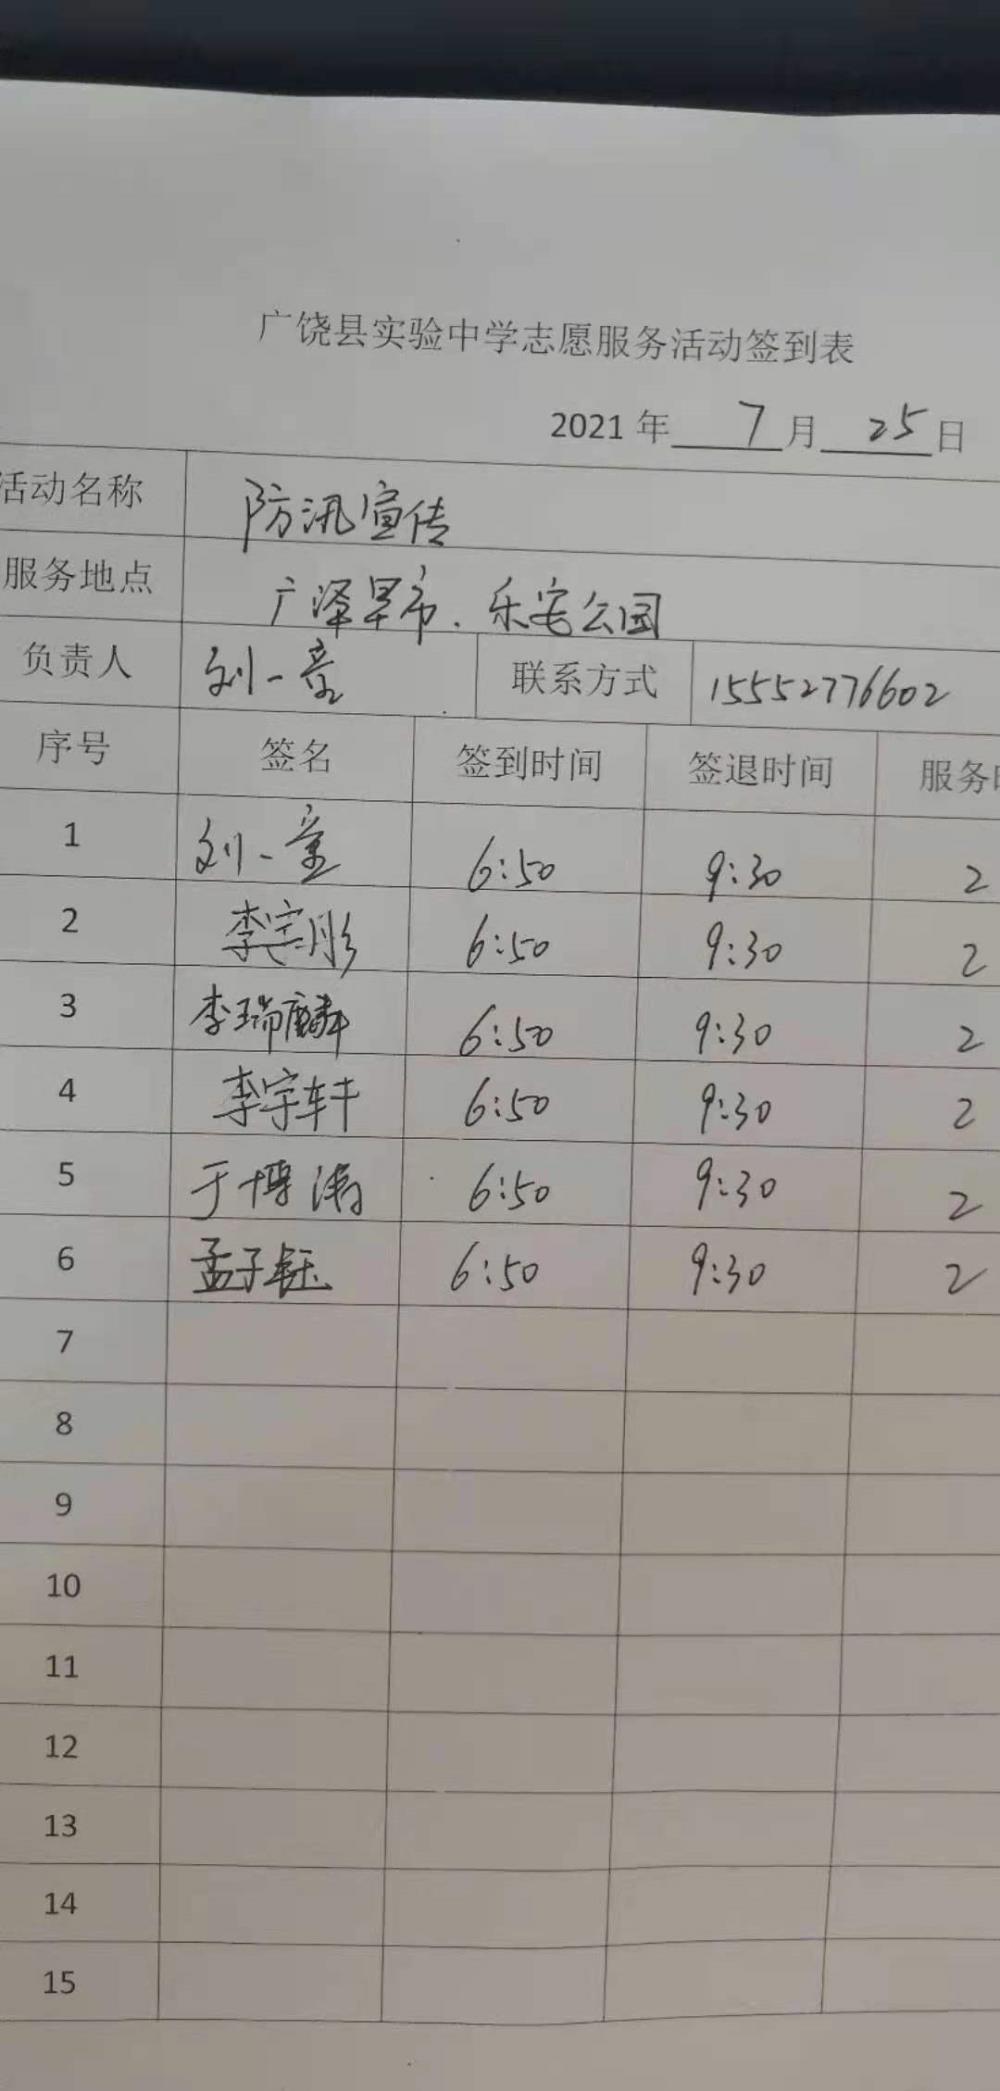 广饶县实验中学志愿服务活动签到表
2021 年 7 月 25 日
活动名称 防汛宣传
服务地点 广泽早市、乐安公园
负责人 刘一童 联系方式 15552776602
序号 签名 签到时间 签退时间 服务时
1 刘一童 6:50 9:30 2
2 李宗彤 6:50 9:30 2
3 李瑞麟 6:50 9:30 2
4 李宇轩 6:50 9:30 2
5 于博涛 6:50 9:30 2
6 孟子钰 6:50 9:30 2
7
8
9
10
11
12
13
14
15